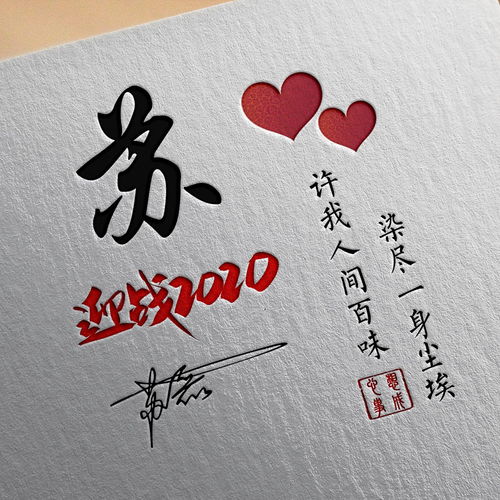 苏
迎战2020
染尽一身尘埃
许我人间百味
心想事成